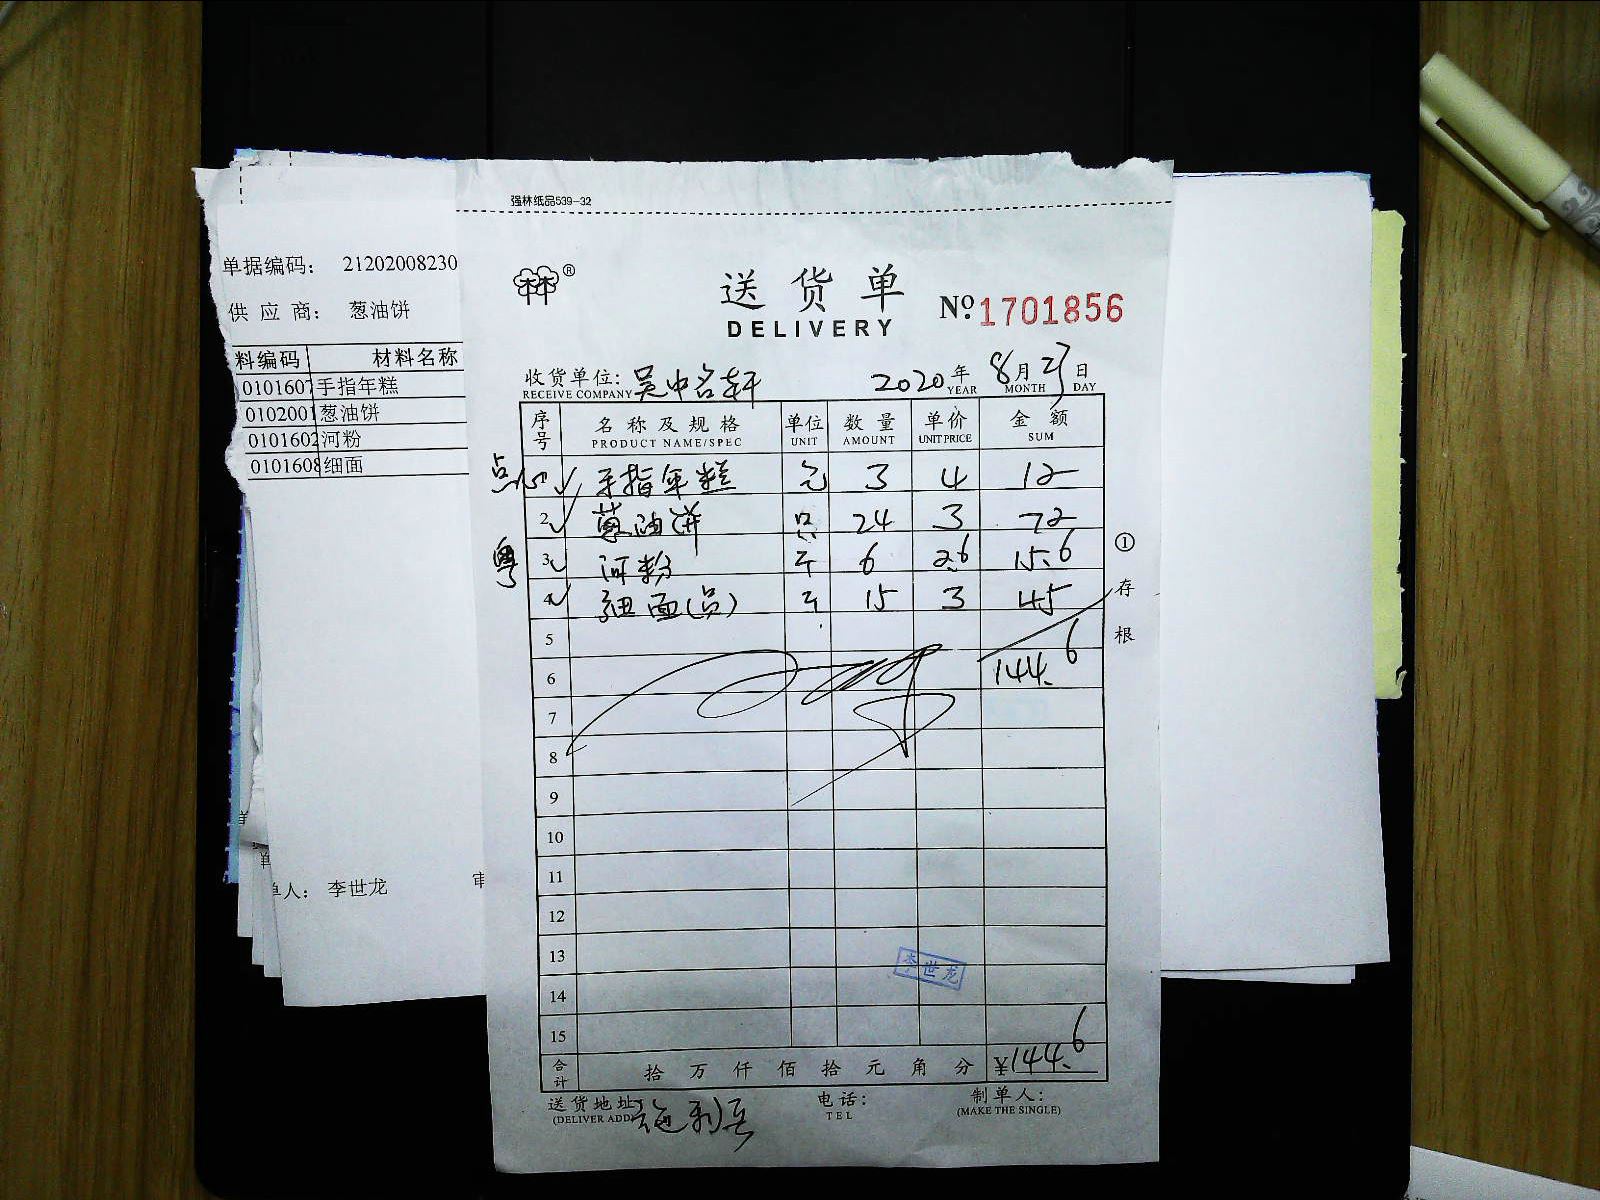 强林纸品539-32
单据编码： 21202008230
供 应 商： 葱油饼
料编码 材料名称
0101607 手指年糕
0102001 葱油饼
0101602 河粉
0101608 细面
单人： 李世龙 审
林林®
送货单
DELIVERY
No. 1701856
收货单位: 吴中名轩 2020 年 8 月 23 日
RECEIVE COMPANY YEAR MONTH DAY
序号 名称及规格 单位 数量 单价 金额
PRODUCT NAME/SPEC UNIT AMOUNT UNIT PRICE SUM
点心 1 手指年糕 3 4 12
2 葱油饼 只 24 3 72
粤 3 河粉 斤 6 2.6 15.6
4 细面(员) 斤 15 3 45
5
6 144.6
7
8
9
10
11
12
13
14
15
李世龙
合计 拾 万 仟 佰 拾 元 角 分 ¥144.6
送货地址 电话: 制单人:
(DELIVER ADD) TEL (MAKE THE SINGLE)
①存根